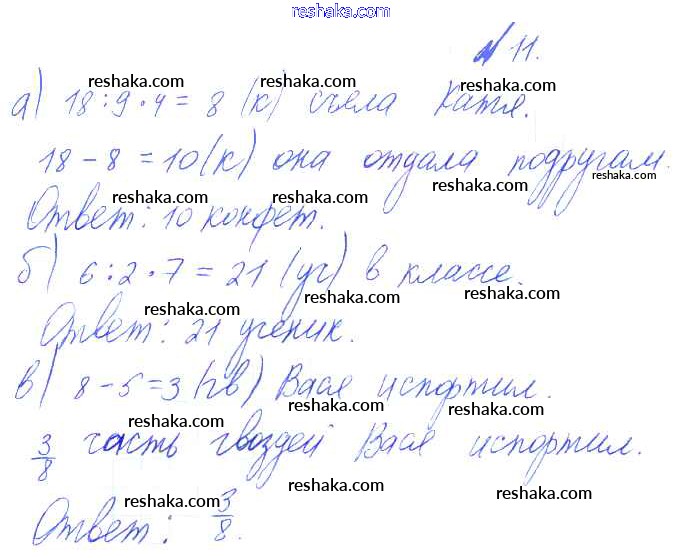 reshaka.com
№ 11.
reshaka.com reshaka.com reshaka.com
а) 18 : 9 · 4 = 8 (к) съела Катя.
18 - 8 = 10 (к) она отдала подругам.
reshaka.com reshaka.com reshaka.com reshaka.com
Ответ: 10 конфет.
б) 6 : 2 · 7 = 21 (уч) в классе.
reshaka.com reshaka.com reshaka.com
Ответ: 21 ученик.
в) 8 - 5 = 3 (гв) Вася испортил.
reshaka.com reshaka.com reshaka.com
3/8 часть гвоздей Вася испортил.
reshaka.com reshaka.com reshaka.com
Ответ: 3/8.